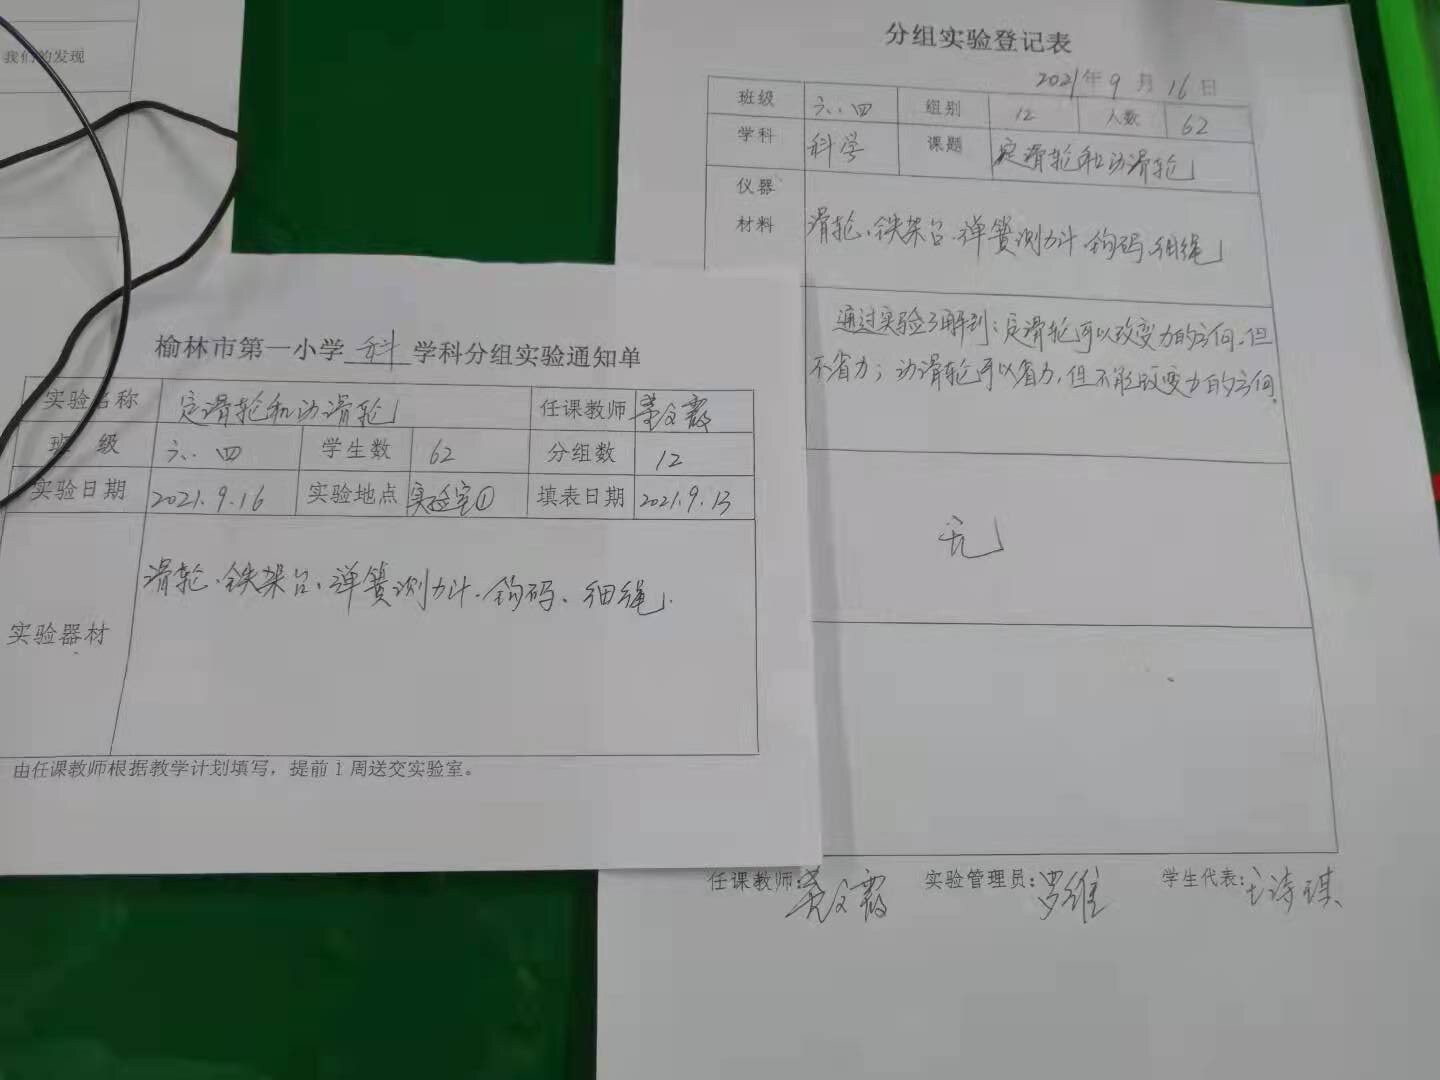 我们的发现
分组实验登记表
2021年9月16日
班级 六.四 组别 12 人数 62
学科 科学 课题 定滑轮和动滑轮
仪器
材料
滑轮、铁架台、弹簧测力计、钩码、细绳
通过实验了解到:定滑轮可以改变力的方向,但
不省力;动滑轮可以省力,但不能改变力的方向。
无
任课教师: 文霞 实验管理员:罗维 学生代表:王诗琪
榆林市第一小学 科 学科分组实验通知单
实验名称 定滑轮和动滑轮 任课教师 文霞
班 级 六.四 学生数 62 分组数 12
实验日期 2021.9.16 实验地点 实验室① 填表日期 2021.9.13
实验器材
滑轮、铁架台、弹簧测力计、钩码、细绳.
由任课教师根据教学计划填写,提前1周送交实验室。